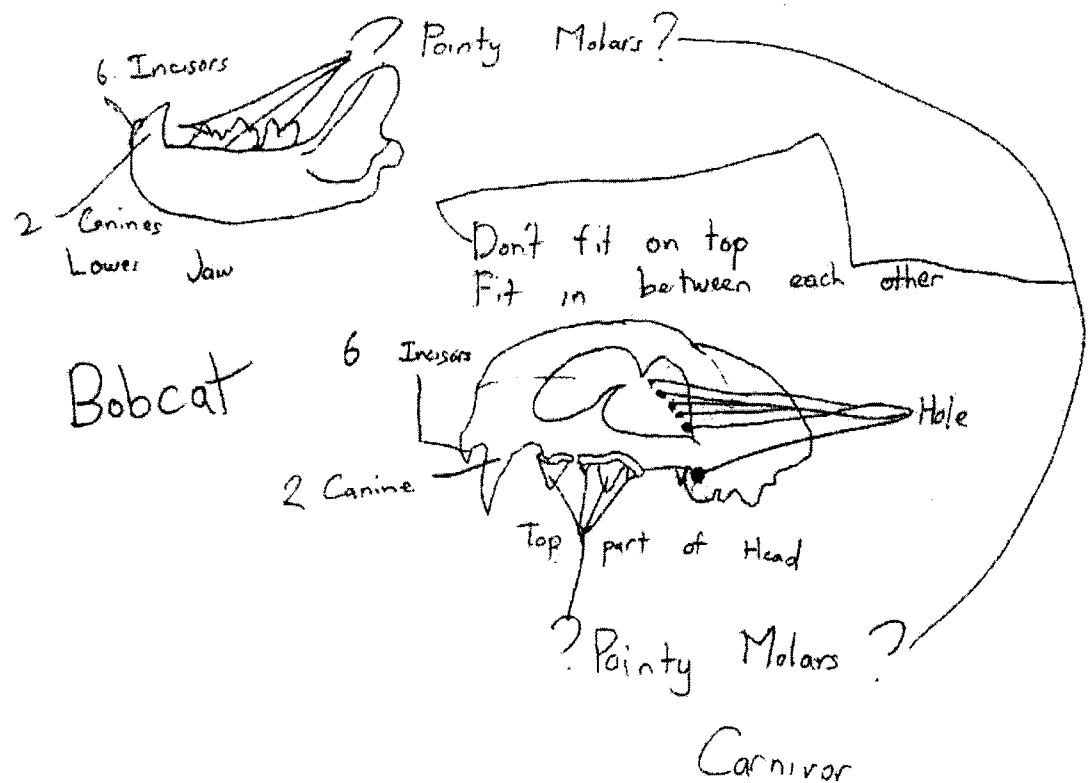 ? Pointy Molars?
6 Incisors
2 Canines
Lower Jaw
Don't fit on top
Fit in between each other
Bobcat
6 Incisors
Hole
2 Canine
Top part of Head
? Pointy Molars ?
Carnivor